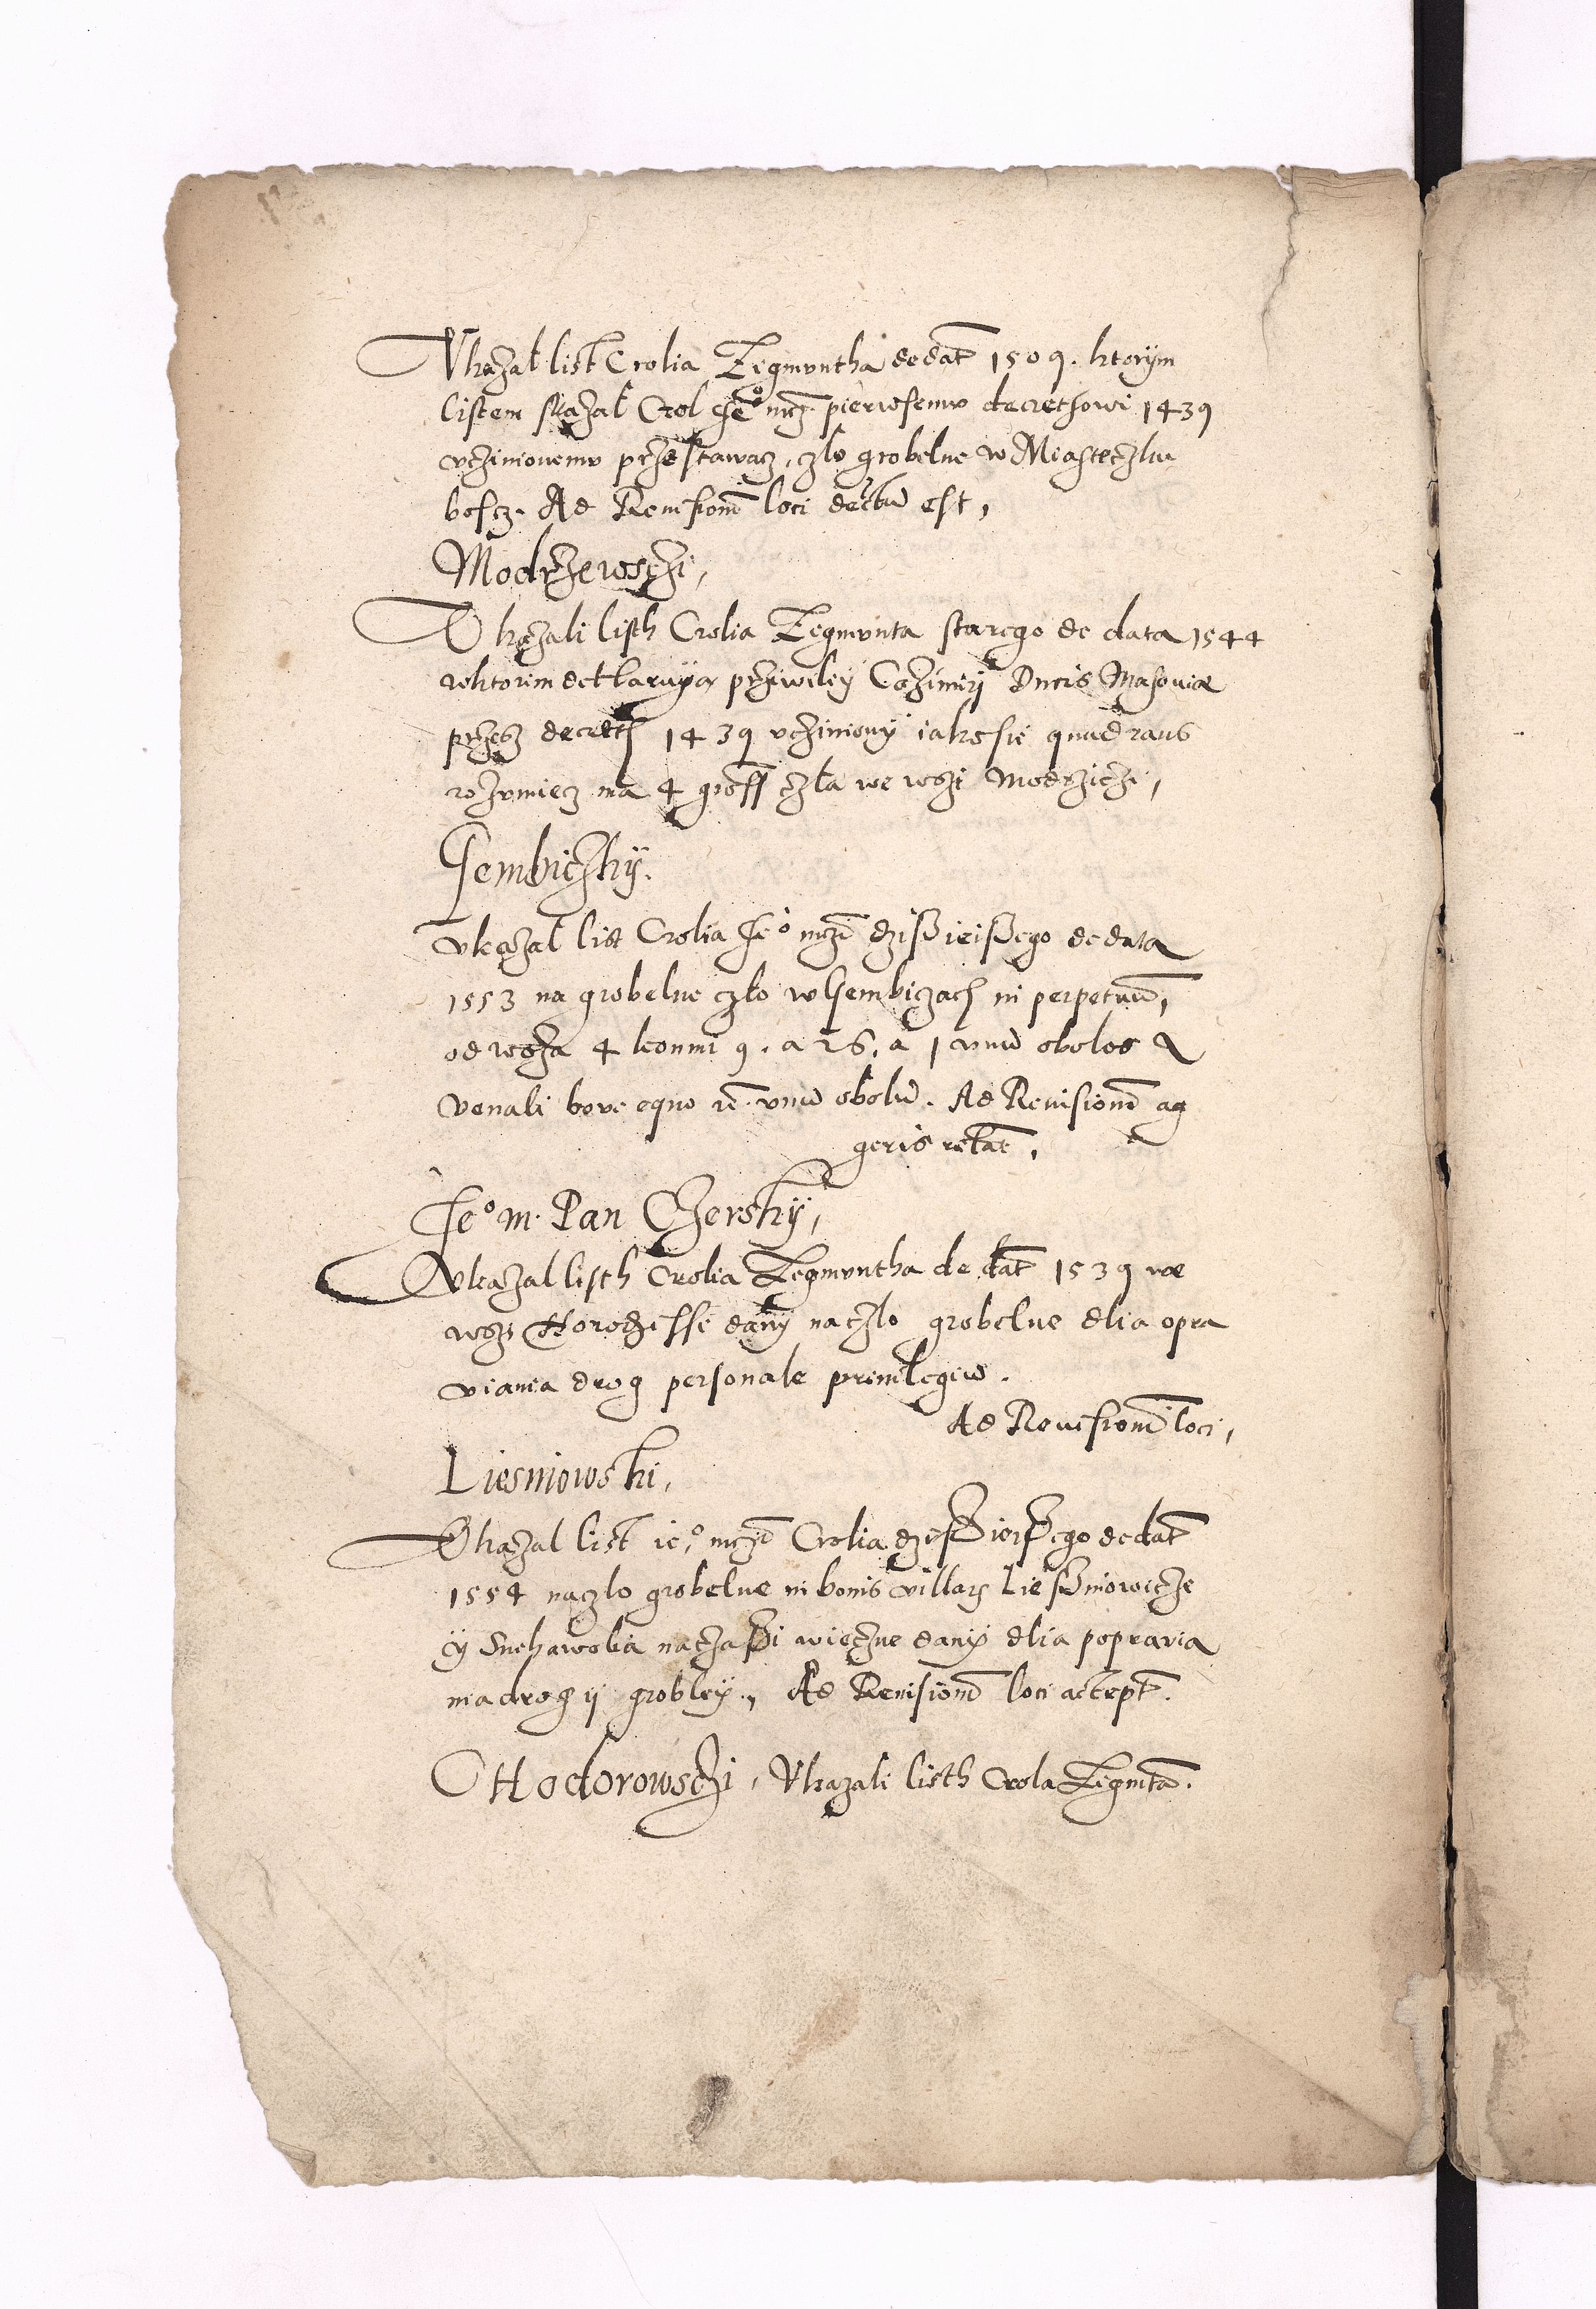 Vkazał list Crolia Zigmvntha de dat 1509. ktorÿm
listem skazał Crol Je° mcz pierwsemv decrethowi 1439
vczinionemv przestawacz, czło grobelne w Miasteczku
boscz. Ad Revisionē loci dectū est,
Modrzewsczi,
Vkazali listh Crolia Zegmvnta starego de data 1544
wktorim declaruÿa prziwileÿ Cazimirj Ducis Masoviæ
przesz decreth 1439 vcziniony iako sie quadrans
rozvmiecz ma 4 gross czła we wszi Modrzicze,
Gembiczkÿ.
vkazał list Crolia Je° mczi dzisieiszego de data
1553 na grobelne czło w Gembiczach in perpetuū,
od woza 4 konmi 9. a 26. a 1 vnū obolos a
venali bove equo it vnū obolū. Ad Revisionē ag
geris relat.
Je° m. Pan Czerskÿ,
Vkazal listh Crolia Zegmvntha de dat 1539 we
wszi Horodisse danÿ na czlo grobelne dlia opra
viania drog personale privilegiū.
Ad Revisionē loci,
Liesniowski,
Vkazal list ie° mczi Crolia dzisieiszego de dat
1554 na czlo grobelne in bonis villarz Liesniowicze
ÿ Suchawolia na czasi wieczne danÿ dlia popravia
nia drog ÿ grobleÿ, Ad Revisionē loci accept.
Chodorowsczi, Vkazali listh Crola Zigmtā.